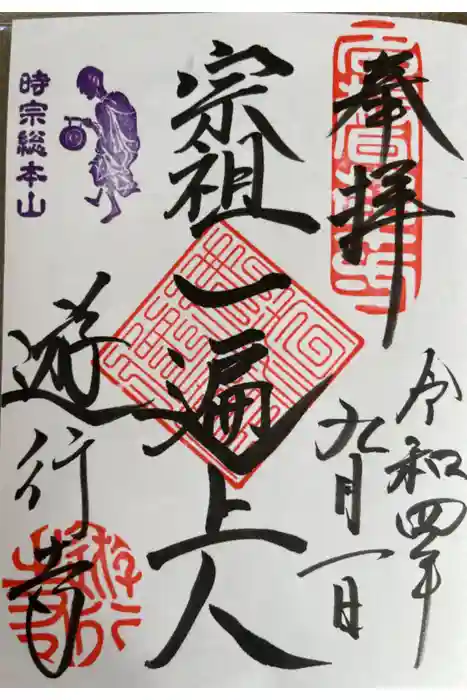 奉拝
令和四年
九月一日
宗祖一遍上人
時宗総本山
遊行寺